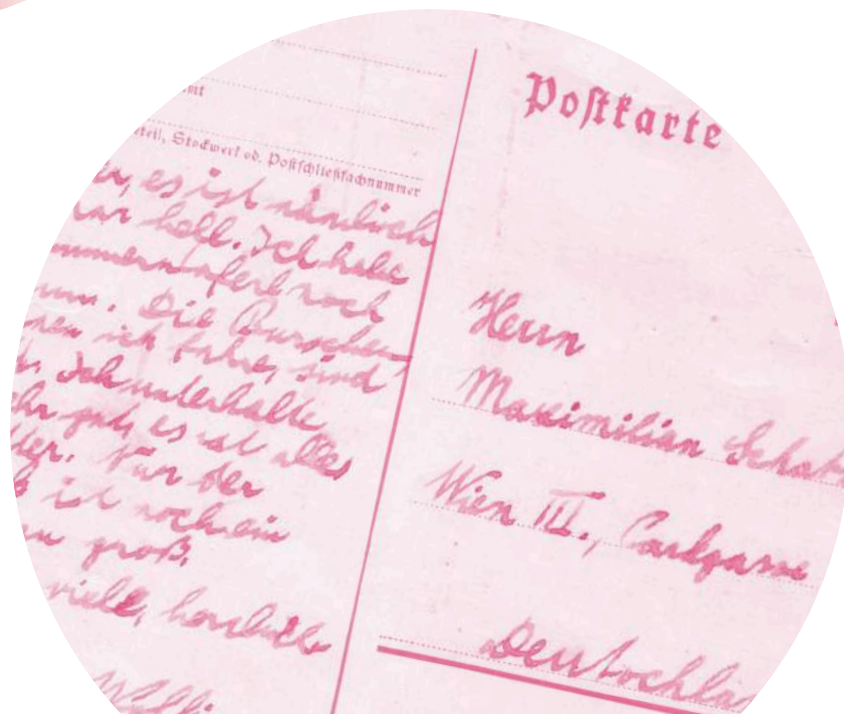 mt
teil, Stockwerk od. Postschließfachnummer
es ist nämlich
hell. Ich habe
noch
Die Burschen
ich fahre, sind
Ich unterhalte
gut, es ist alles
Nur der
ist noch ein
groß.
viele, herzliche
Willi
Postkarte
Herrn
Maximilian
Wien III., Carlgasse
Deutschla